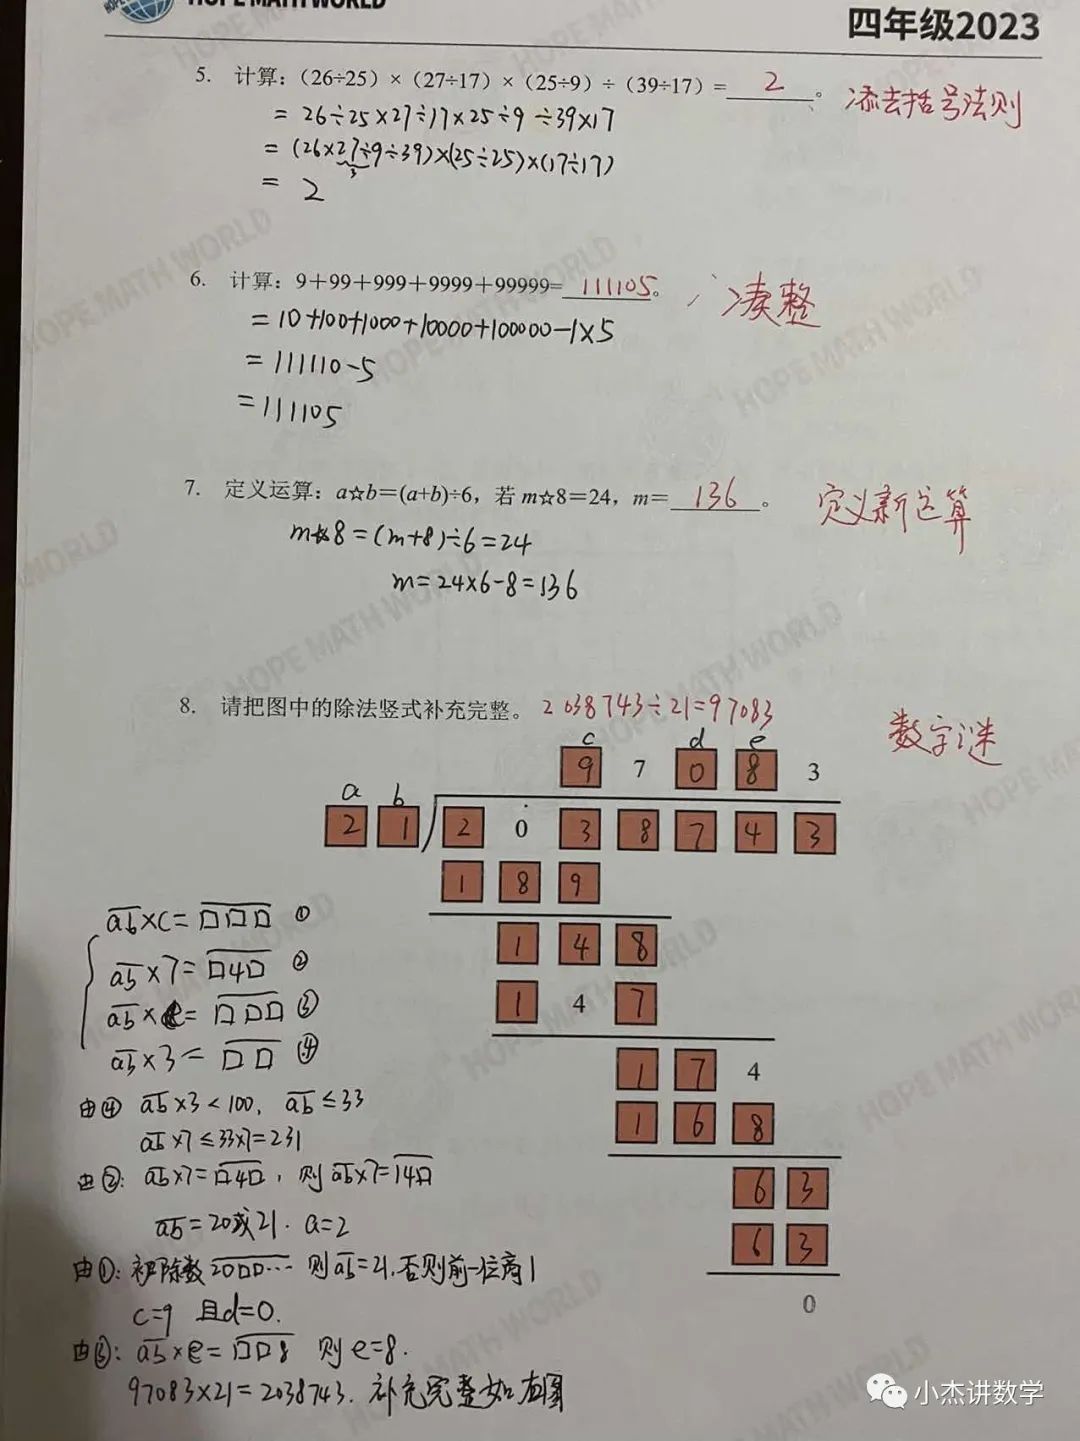 HOPE MATH WORLD
四年级2023
5. 计算：（26÷25）×（27÷17）×（25÷9）÷（39÷17）= 2 。 添去括号法则
= 26÷25×27÷17×25÷9÷39×17
= (26×27÷9÷39)×(25÷25)×(17÷17)
3
= 2
6. 计算：9＋99＋999＋9999＋99999= 111105 。 凑整
= 10+100+1000+10000+100000-1×5
= 111110-5
= 111105
7. 定义运算：a☆b＝(a+b)÷6，若 m☆8＝24，m＝ 136 。 定义新运算
m☆8=(m+8)÷6=24
m=24×6-8=136
8. 请把图中的除法竖式补充完整。 2038743÷21=97083 数字谜
c d e
9 7 0 8 3
a b
2 1 2 0 3 8 7 4 3
1 8 9
1 4 8
1 4 7
1 7 4
1 6 8
6 3
6 3
0
ab×c=□□□ ①
ab×7=□4□ ②
ab×e=□□□ ③
ab×3=□□ ④
由④ ab×3<100, ab≤33
ab×7≤33×7=231
由②: ab×7=□4□, 则ab×7=14□
ab=20或21. a=2
由①: 被除数20□□… 则ab=21,否则前一位商1
c=9 且d=0.
由③: ab×e=□□8 则e=8.
97083×21=2038743. 补充完整如右图
小杰讲数学